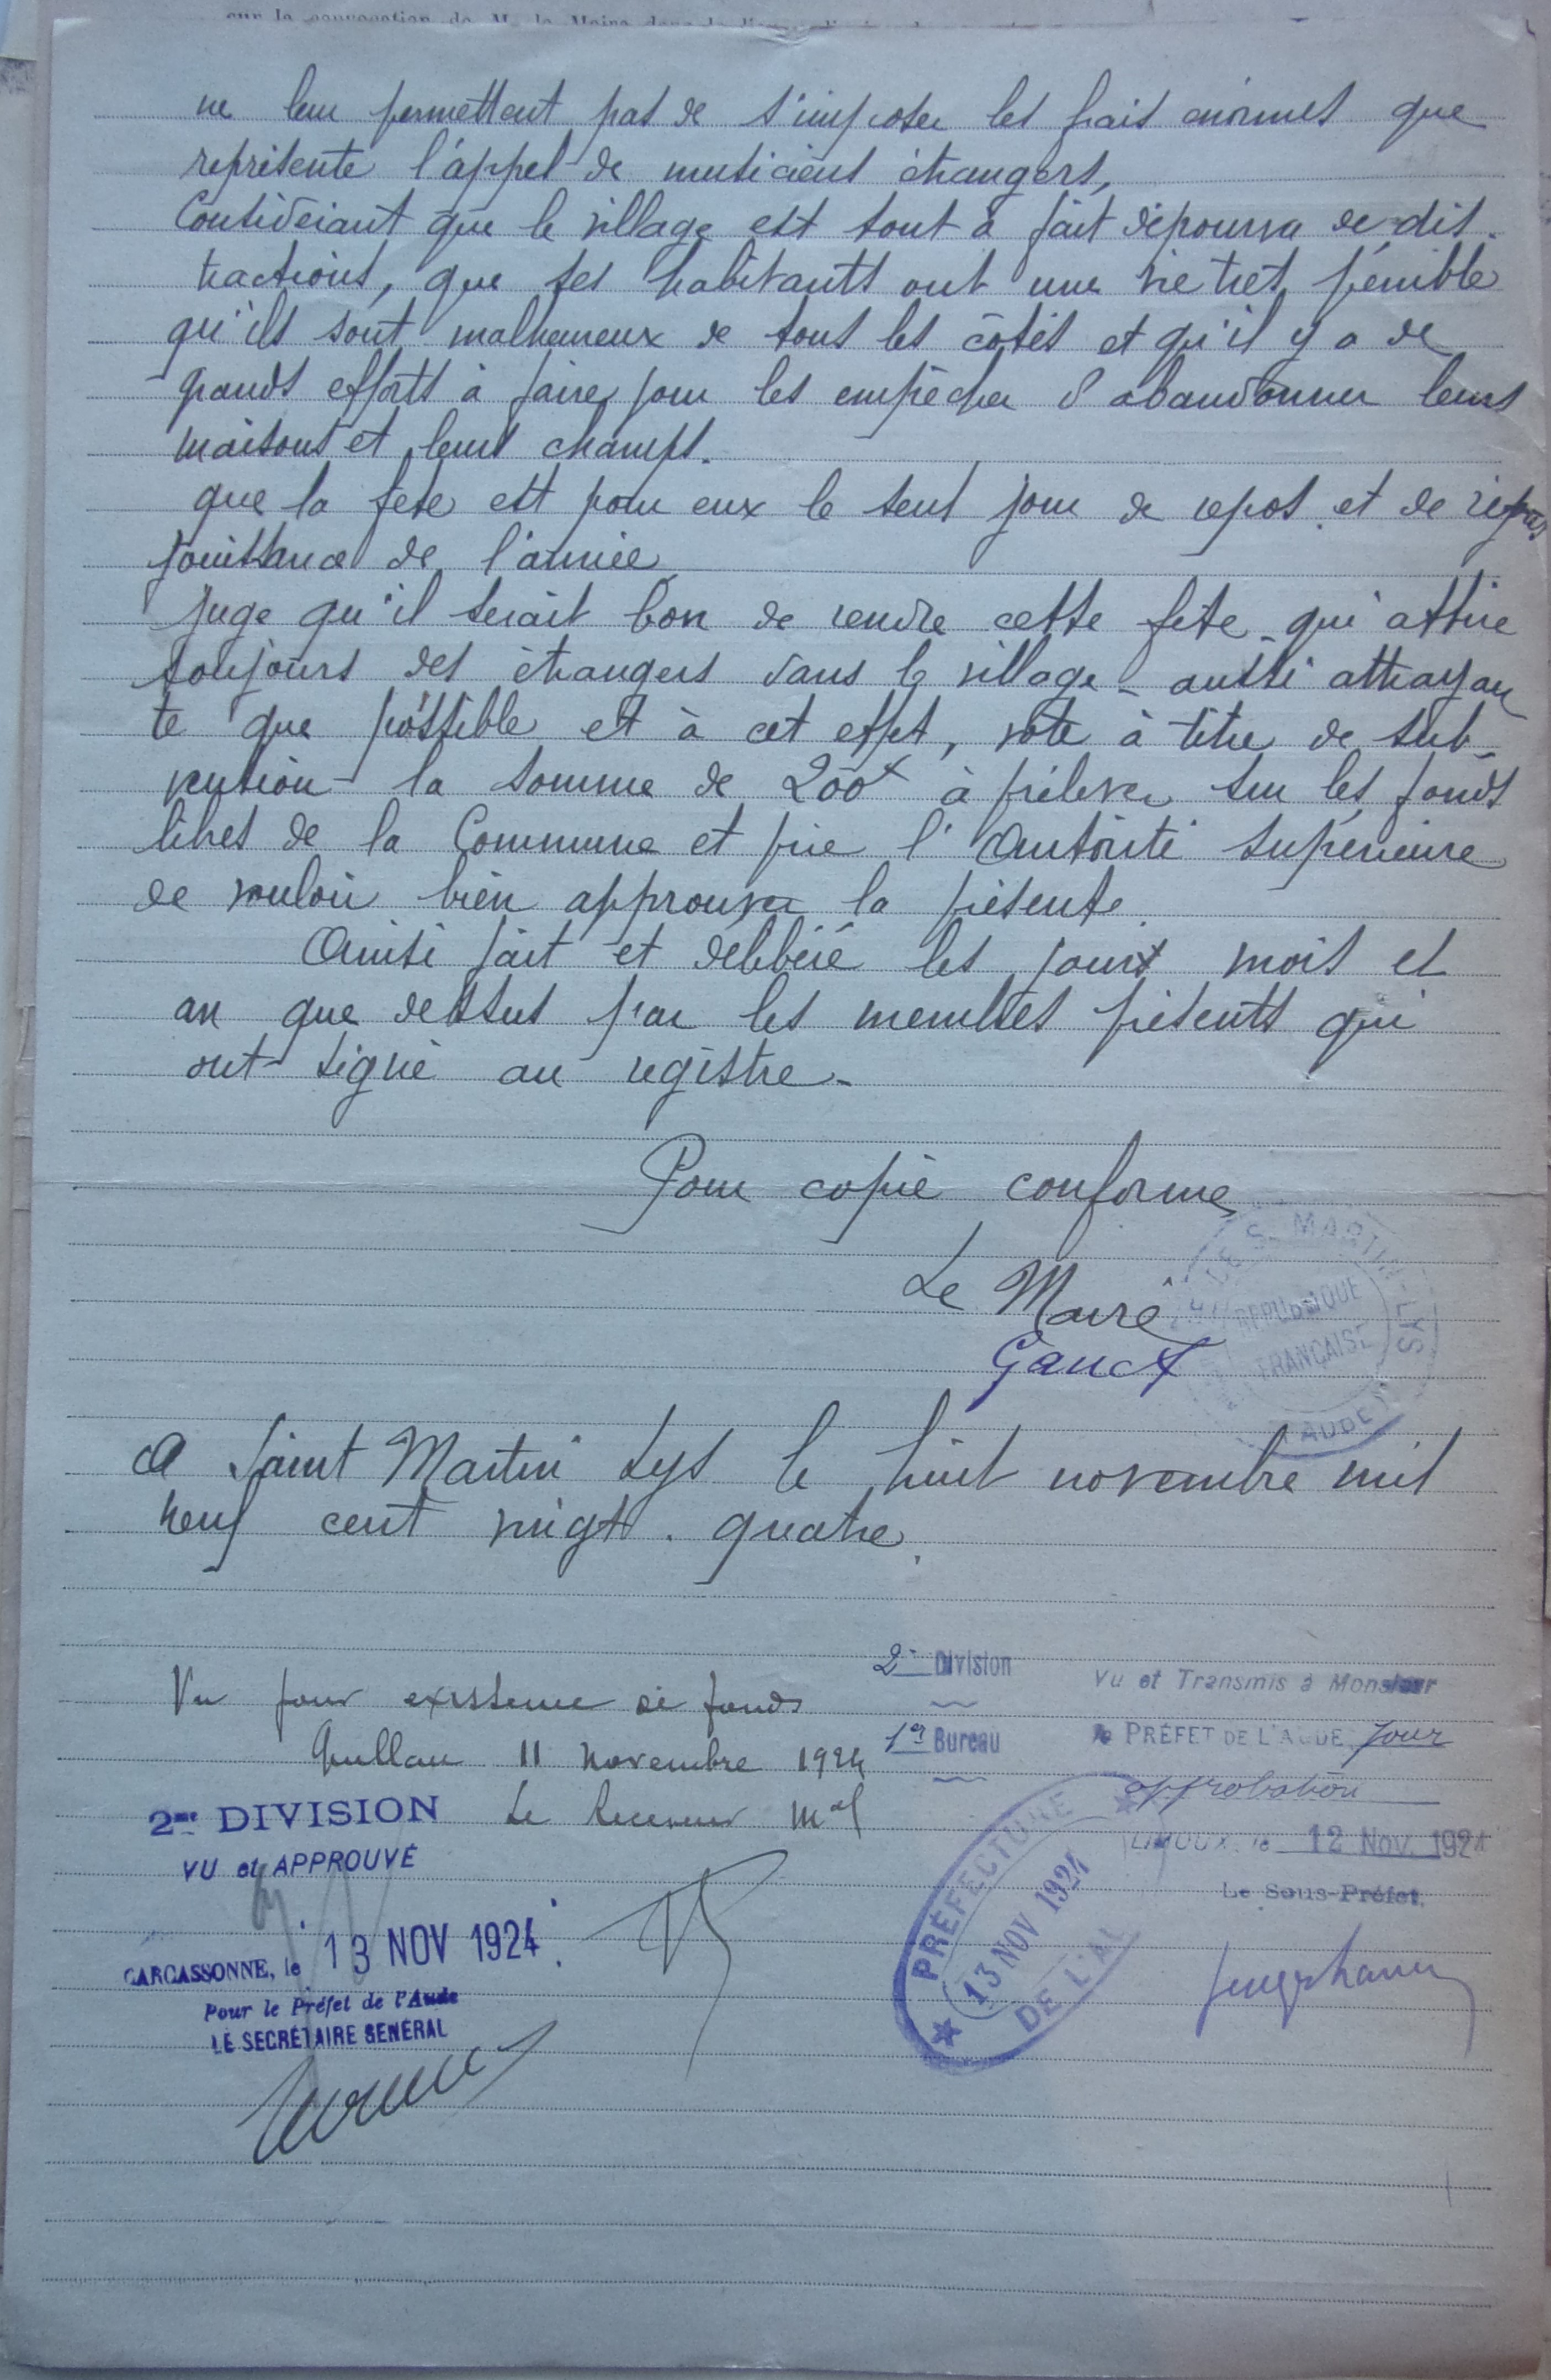 sur la convocation de M. le Maire dans le lieu
ne leur permettent pas de s'imposer les frais énormes que
représente l'appel de musiciens étrangers,
Considérant que le village est tout à fait dépourvu de dis-
tractions, que ses habitants ont une vie très pénible
qu'ils sont malheureux de tous les côtés et qu'il y a de
grands efforts à faire pour les empêcher d'abandonner leurs
maisons et leurs champs.
que la fête est pour eux le seul jour de repos et de
jouissance de l'année
juge qu'il serait bon de rendre cette fête - qui attire
toujours des étrangers dans le village - aussi attrayan
te que possible et à cet effet, vote à titre de sub-
vention la somme de 200f à prélever sur les fonds
libres de la Commune et prie l'Autorité supérieure
de vouloir bien approuver la présente.
Ainsi fait et délibéré les jours mois et
an que dessus par les membres présents qui
ont signé au registre.
Pour copie conforme
Le Maire
S. MARTIN-LYS
RÉPUBLIQUE
FRANÇAISE
AUDE
A Saint Martin Lys le huit novembre mil
neuf cent vingt-quatre.
Vu pour existence de fonds
Quillan 11 novembre 1924
Le Receveur Mal
2e Division
1er Bureau
Vu et Transmis à Monsieur
le PRÉFET DE L'AUDE, pour
approbation
LIMOUX, le 12 Nov. 1924
Le Sous-Préfet,
2me DIVISION
VU et APPROUVÉ
CARCASSONNE, le 13 NOV 1924
Pour le Préfet de l'Aude
LE SECRÉTAIRE GÉNÉRAL
PRÉFECTURE
13 NOV 1924
DE L'AU